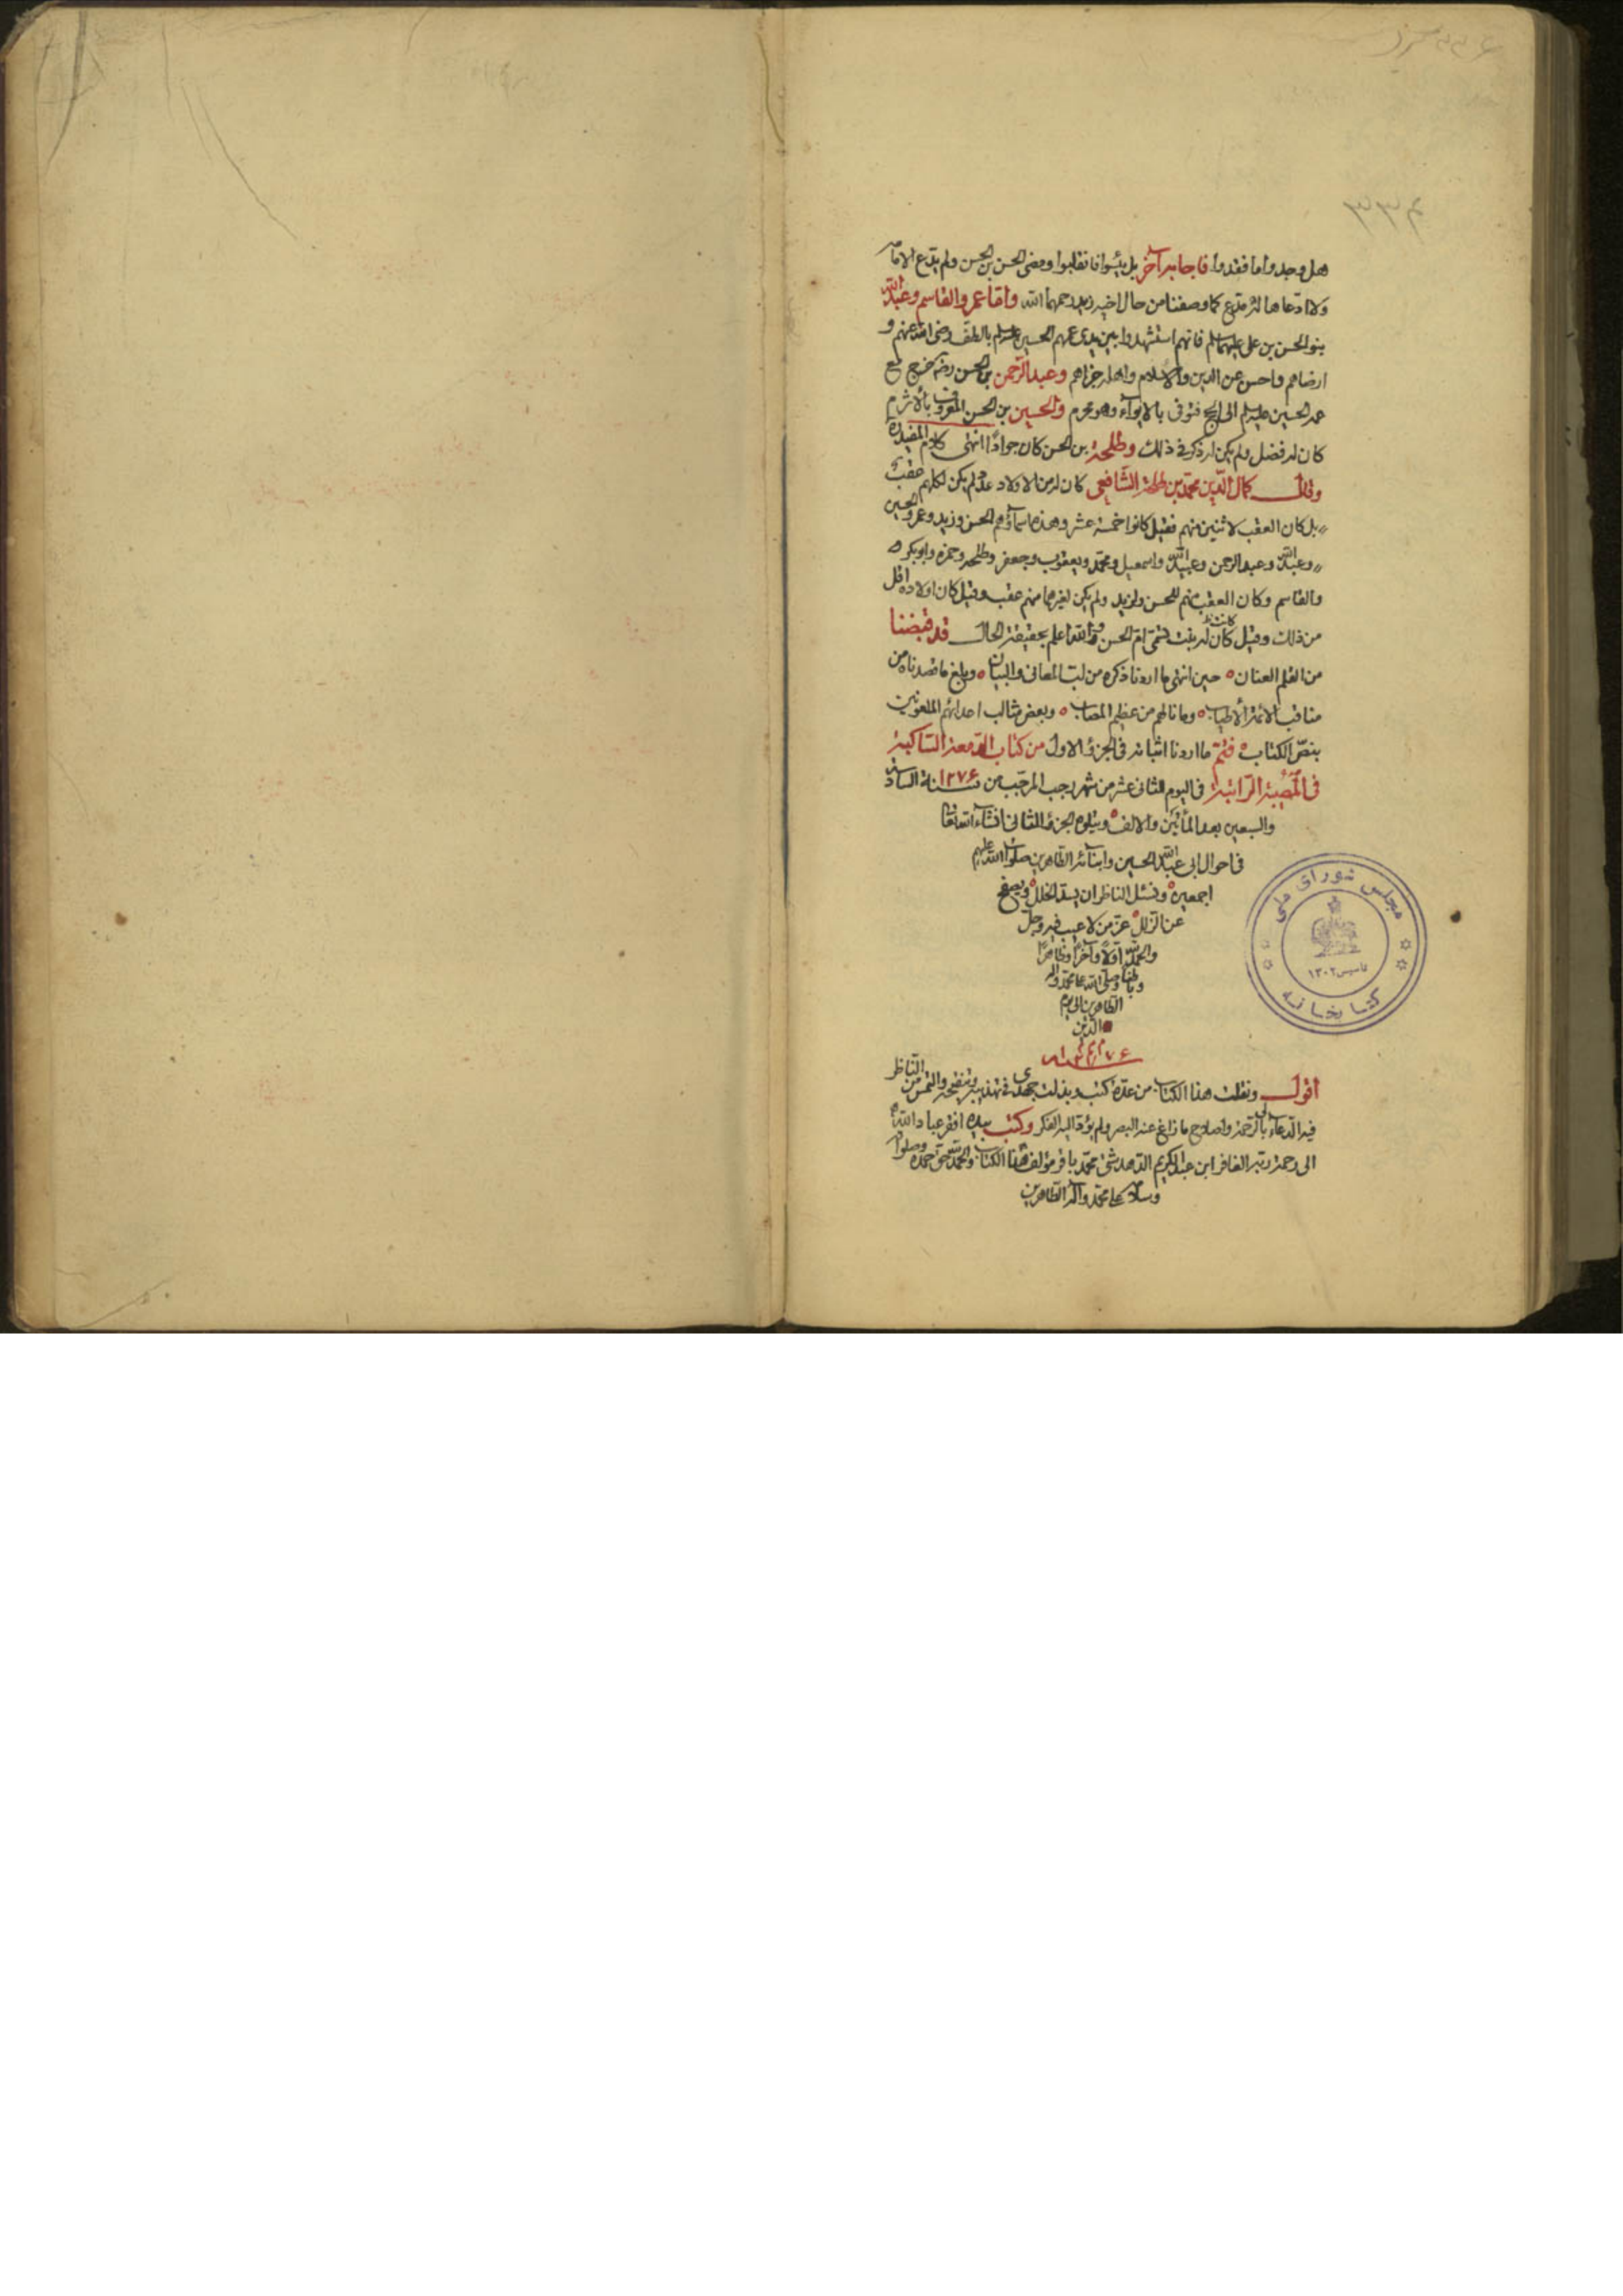 هل وجدوا ما فقدوا فاجابه آخر بل يئسوا فانقلبوا ومضى الحسن بن الحسن ولم يدّع الامامة
ولا ادّعاها له مدّع كما وصفنا من حال اخيه زيد رحمهما الله وامّا عمر والقاسم وعبد الله
بنو الحسن بن علي عليهما سلم فانهم استشهدوا بين يدي عمهم الحسين عليه سلم بالطفّ رضى الله عنهم و
ارضاهم واحسن عن الدين والاسلام واهله جزاهم وعبد الرّحمن بن الحسن رضه خرج مع
عمه الحسين عليه سلم الى الحج فتوفى بالابوآء وهو محرم والحسين بن الحسن المعروف بالأثرم
كان له فضل ولم يكن له ذكر في ذلك وطلحة بن الحسن كان جوادًا انتهى كلام المفيد ره
وقال كمال الدّين محمّد بن طلحة الشّافعى كان له من الاولاد عدد لم يكن لكلهم عقب
بل كان العقب لاثنين منهم فقيل كانوا خمسة عشر وهذه اسمآؤهم الحسن وزيد وعمر والحسين
وعبد الله وعبد الرحمن وعبيد الله واسمعيل ومحمّد ويعقوب وجعفر وطلحه وحمزه وابو بكر
والقاسم وكان العقب منهم للحسن ولزيد ولم يكن لغيرهما منهم عقب وقيل كان اولاده اقل
من ذلك وقيل كان كانت له بنت تسمّى امّ الحسن والله اعلم بحقيقة الحال قد قبضنا
من القلم العنان حين انتهى ما اردنا ذكره من لبّ المعانى والبيان وبلغ ما قصدناه من
مناقب الائمة الأطياب وما نالهم من عظيم المصاب وبعض مثالب اعدائهم الملعونين
بنصّ الكتاب فتمّ ما اردنا اثباته فى الجزؤ الاول من كتاب الدّمعة السّاكبة
فى المصيبة الرّاتبة فى اليوم الثانى عشر من شهر رجب المرجّب من سنة ١٢٧۶ السادسة
والسبعين بعد المأتين والالف ويتلوه الجزؤ الثانى انشآء الله تعالى
فى احوال ابى عبد الله الحسين وابنآئه الطّاهرين صلوات الله عليهم
اجمعين ونسئل الناظر ان يسدّ الخلل ويصفح
عن الزلل عزّ من لا عيب فيه وجلّ
والحمد لله اوّلًا وآخرًا وظاهرًا
وباطنًا وصلّى الله على محمّد وآله
الطّاهرين الى يوم
الدّين
١٢٧۶
اقول ونقلت هذا الكتاب من عدّة كتب وبذلت جهدى في تهذيبه وتنقيحه والتمس من النّاظر
فيه الدّعآء لى بالرّحمة واصلاح ما زاغ عنه البصر ولم يؤدّ اليه الفكر وكتب بيده افقر عباد الله
الى رحمة ربّه الغافر ابن عبد الكريم الدّهدشتى محمّد باقر مؤلف هذا الكتاب والحمد لله حقّ حمده وصلواته
وسلامه على محمّد وآله الطّاهرين
مجلس شوراى ملى
تاسيس ١٣٠٢
كتابخانه